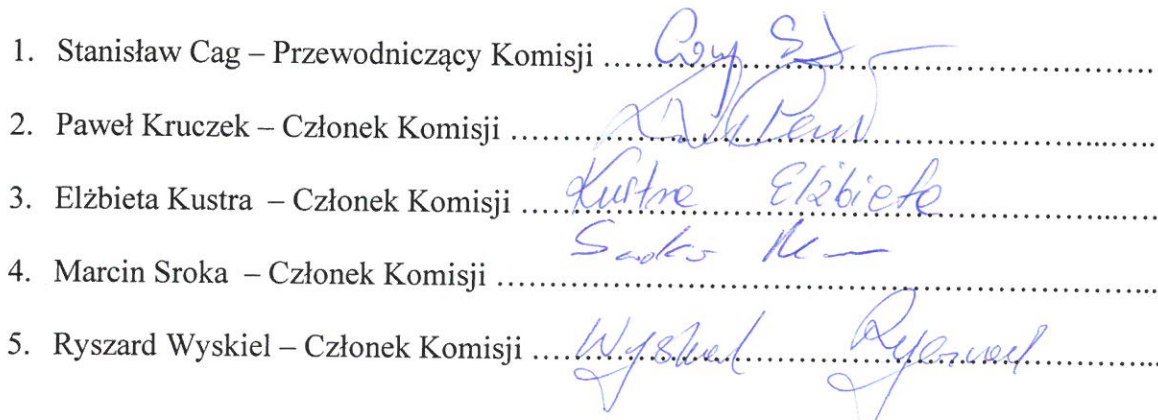 1. Stanisław Cag – Przewodniczący Komisji ......................................................
2. Paweł Kruczek – Członek Komisji ......................................................
3. Elżbieta Kustra – Członek Komisji ...... Kustra Elżbieta ......
4. Marcin Sroka – Członek Komisji ......................................................
5. Ryszard Wyskiel – Członek Komisji ...... Wyskiel Ryszard ......